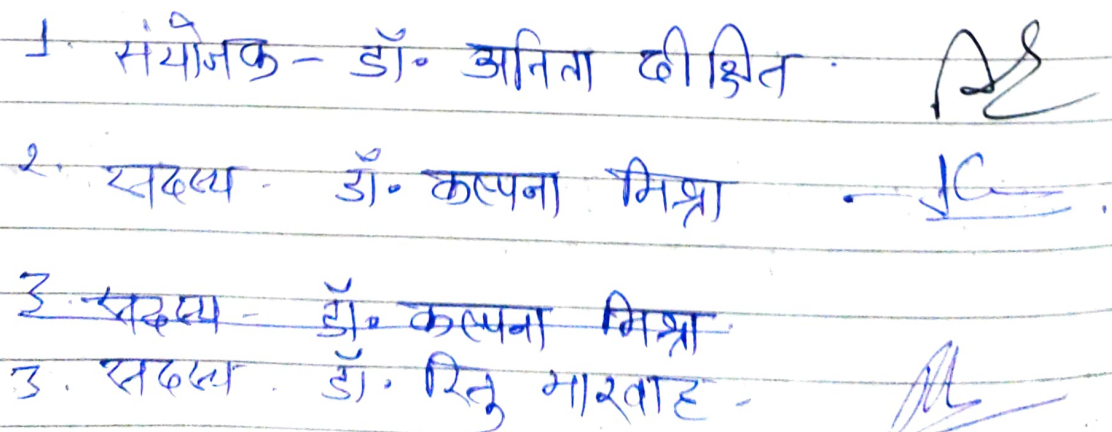 1. संयोजक - डॉ० अनिता दीक्षित
2. सदस्य - डॉ० कल्पना मिश्रा -
3. सदस्य - डॉ० कल्पना मिश्रा
3. सदस्य - डॉ. रितु मारवाह -